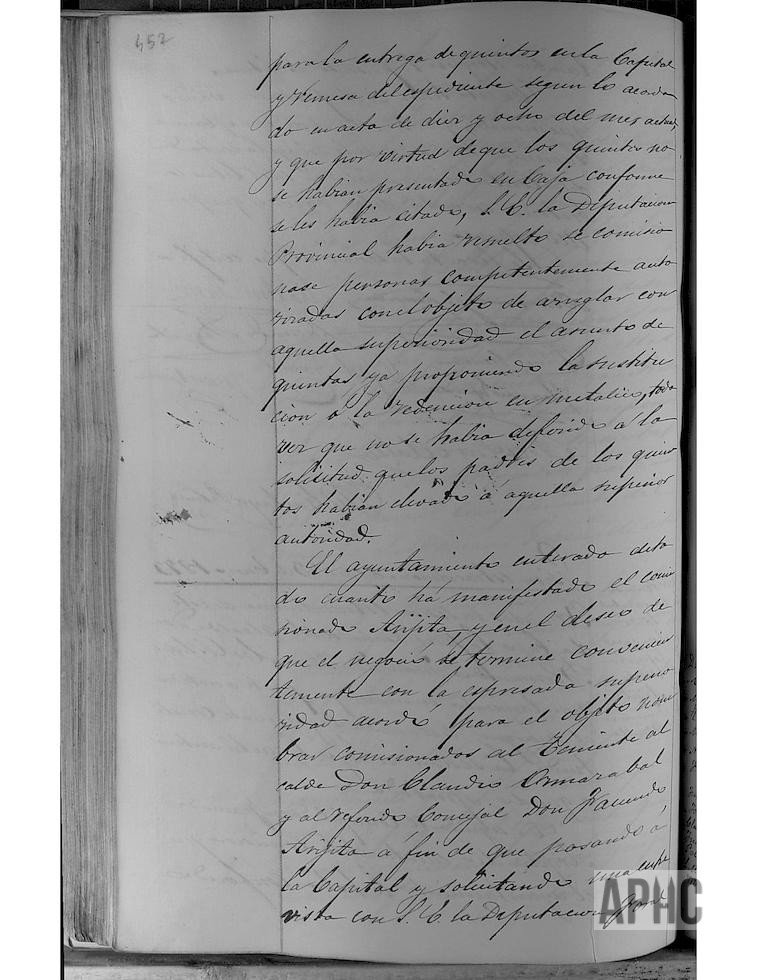 452
para la entrega de quintos en la Capital
y remesa del espediente segun lo acorda
do en acta de diez y ocho del mes actual,
y que por virtud de que los quintos no
se habian presentado en Caja conforme
se les habia citado, S. E. la Diputacion
Provincial habia resuelto se comisio
nase personas competentemente auto
rizadas con el objeto de arreglar con
aquella superioridad el asunto de
quintas ya proponiendo la sustitu
cion o la redencion en metalico, toda
vez que no se habia deferido á la
solisitud que los padres de los quin
tos habian elevado á aquella superior
autoridad.
El ayuntamiento enterado de to
do cuanto ha manifestado el comi
sionado Arijita, y en el deseo de
que el negocio se termine convenien
temente con la espresada superio
ridad acordó para el objeto nom
brar comisionados al Teniente al
calde Don Claudio Ormazabal
y al referido Concejal Don Facundo
Arijita á fin de que pasando á
la Capital y solicitando una entre
vista con S. E. la Diputacion
APHC